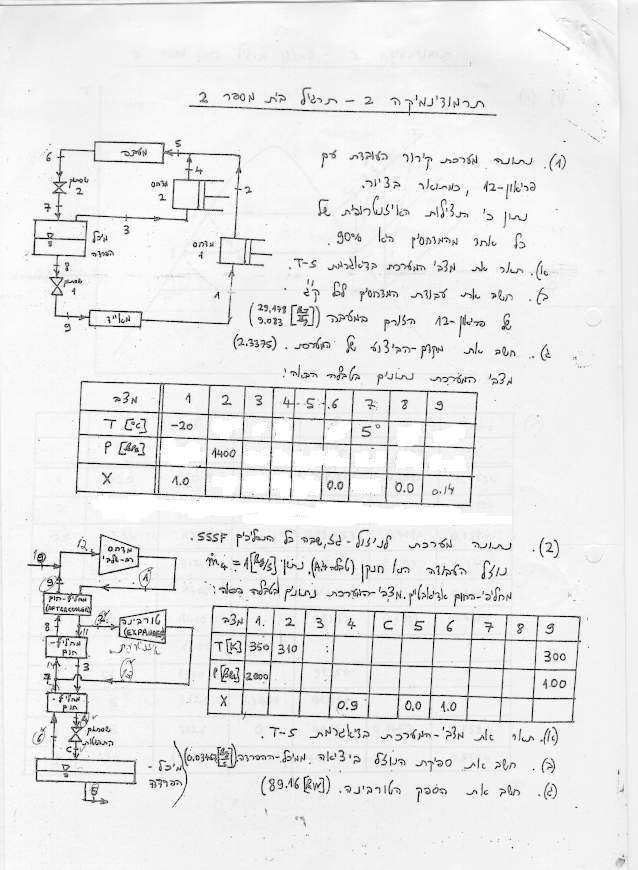 תרמודינמיקה 2 - תרגיל בית מספר 2
(1). נתונה מערכת קירור העובדת עם
פריאון-12, כמתואר בציור.
נתון כי הנצילות האיזנטרופית של
כל אחד מהמדחסים היא 90%.
א). תאר את מצבי המערכת בדיאגרמת T-S.
ב). חשב את עבודת המדחסים לכל ק"ג
של פריאון-12 הזורם במעבה (29.178 9.083 [kJ/kg])
ג). חשב את מקדם-הביצוע של המערכת. (2.3375)
מצבי המערכת נתונים בטבלה הבאה:
מעבה
5
6
4
2
שסתום 2
מדחס 2
7
3
מיכל הפרדה
מדחס 1
8
שסתום 1
1
9
מאייד
מצב 1 2 3 4 5 6 7 8 9
T [°C] -20 5°
P [kPa] 1400
X 1.0 0.0 0.0 0.14
(2). נתונה מערכת לניזול-גז, שבה כל התהליכים SSSF.
נוזל העבודה הוא חנקן (טבלה A.4). נתון ṁ₄ = 1 [kg/s]
מחליפי-החום אדיאבטיים. מצבי-המערכת נתונים בטבלה הבאה:
מצב 1. 2 3 4 C 5 6 7 8 9
T [K] 350 310 300
P [kPa] 2000 100
X 0.9 0.0 1.0
(א). תאר את מצבי-המערכת בדיאגרמת T-S.
(ב). חשב את ספיקת הנוזל ביציאה ממיכל-ההפרדה.
(ג). חשב את הספק הטורבינה. (89.16 [kW])
12
מדחס
10
9
מחליף-חום (AFTERCOOLER)
8
11
טורבינה (EXPANDER)
מחליף-חום
7
3
מחליף-חום
4
שסתום
6
C
מיכל-הפרדה
5